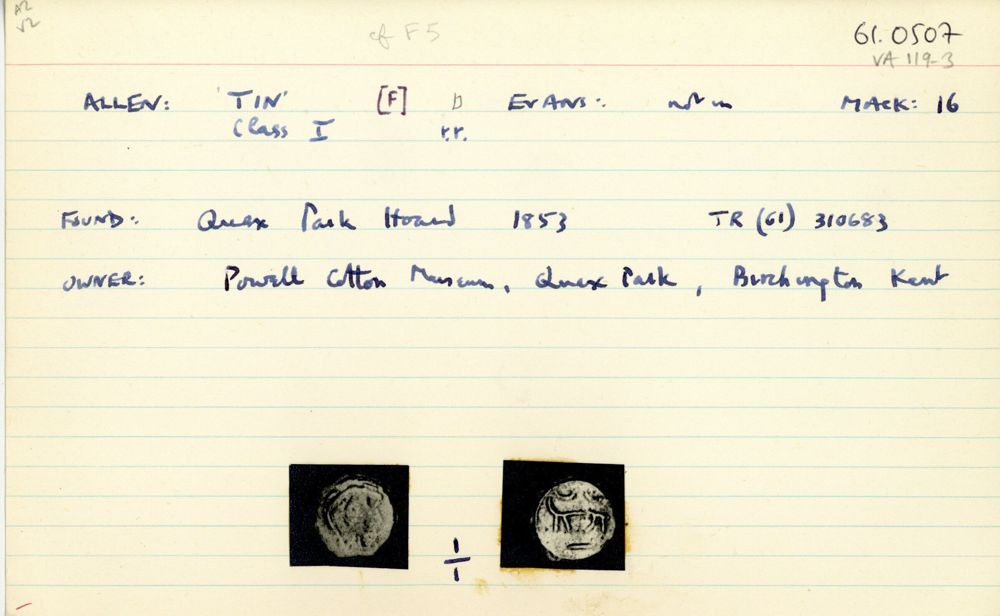 cf F5
61.0507
VA 119-3
ALLEN: 'TIN' [F] D EVANS: not in MACK: 16
Class I r.r.
FOUND: Quex Park Hoard 1853 TR (61) 310683
OWNER: Powell Cotton Museum, Quex Park, Birchington Kent
1/1